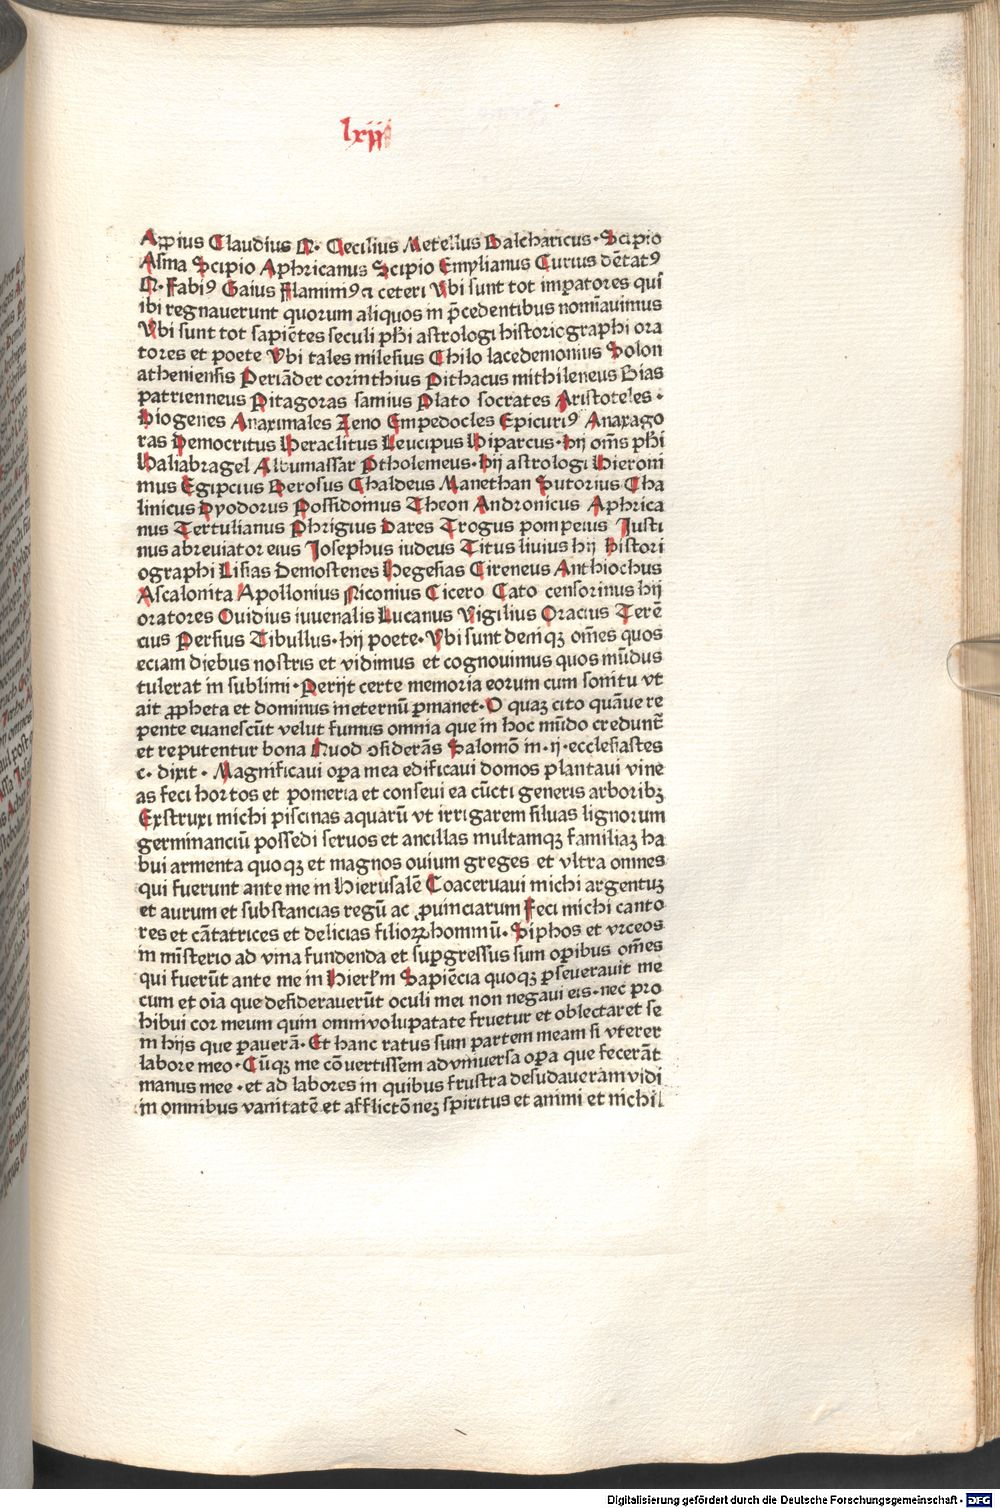 lxii
Appius Claudius M. Cecilius Metellus Balcharicus. Scipio
Asina Scipio Aphricanus Scipio Emylianus Curius dẽtatꝰ
M. Fabiꝰ Gaius Flaminiꝰ ⁊ ceteri Vbi sunt tot imꝑatores qui
ibi regnauerunt quorum aliquos in p̃cedentibus nomiauimus
Vbi sunt tot sapiẽtes seculi phi astrologi historiographi ora
tores et poete Vbi tales milesius Chilo lacedemonius Solon
atheniensis Periãder corinthius Pithacus mithileneus Bias
patrienneus Pitagoras samius Plato socrates Aristoteles.
Diogenes Anaximales Zeno Empedocles Epicuriꝰ Anaxago
ras Democritus Heraclitus Leucipus Hiparcus. hij om̃s phi
Haliabragel Albumassar Ptholemeus. hij astrologi Hieroni
mus Egipcius Berosus Chaldeus Manethan Sutorius Cha
linicus Dyodorus Possidomus Theon Andronicus Aphrica
nus Tertulianus Phrigius Dares Trogus pompeius Justi
nus abreuiator eius Josephus iudeus Titus liuius hij Histori
ographi Lisias Demostenes Hegesias Cireneus Anthiochus
Ascalonita Apollonius Niconius Cicero Cato censorinus hij
oratores Ouidius iuuenalis Lucanus Vigilius Oracius Terẽ
cius Persius Tibullus. hij poete. Vbi sunt deniqꝫ om̃es quos
eciam diebus nostris et vidimus et cognouimus quos mũdus
tulerat in sublimi. Perijt certe memoria eorum cum sonitu vt
ait ꝓpheta et dominus ineternũ ꝑmanet. O quaꝫ cito quãue re
pente euanescũt velut fumus omnia que in hoc mũdo credunt̃
et reputentur bona Quod ꝯsiderãs Salomõ in. ij. ecclesiastes
c. dixit. Magnificaui oꝑa mea edificaui domos plantaui vine
as feci hortos et pomeria et conseui ea cũcti generis arboribꝫ
Exstruxi michi piscinas aquarũ vt irrigarem siluas lignorum
germinanciũ possedi seruos et ancillas multamqꝫ familiaꝫ ha
bui armenta quoqꝫ et magnos ouium greges et vltra omnes
qui fuerunt ante me in Hierusalẽ Coaceruaui michi argentuꝫ
et aurum et substancias regũ ac ꝓuinciarum Feci michi canto
res et cãtatrices et delicias filioꝝ hominũ. Siphos et vrceos
in mĩsterio ad vina fundenda et suꝑgressus sum oꝑibus om̃es
qui fuerũt ante me in Hierłm Sapiẽcia quoqꝫ ꝑseuerauit me
cum et oĩa que desiderauerũt oculi mei non negaui eis. nec pro
hibui cor meum quin omni volupatate frueretur et oblectaret se
in hijs que ꝑauerã. Et hanc ratus sum partem meam si vterer
labore meo. Cũqꝫ me cõuertissem ad vniuersa oꝑa que fecerãt
manus mee. et ad labores in quibus frustra desudaueram vidi
in omnibus vanitatẽ et afflictõneꝫ spiritus et animi et nichil
Digitalisierung gefördert durch die Deutsche Forschungsgemeinschaft - DFG